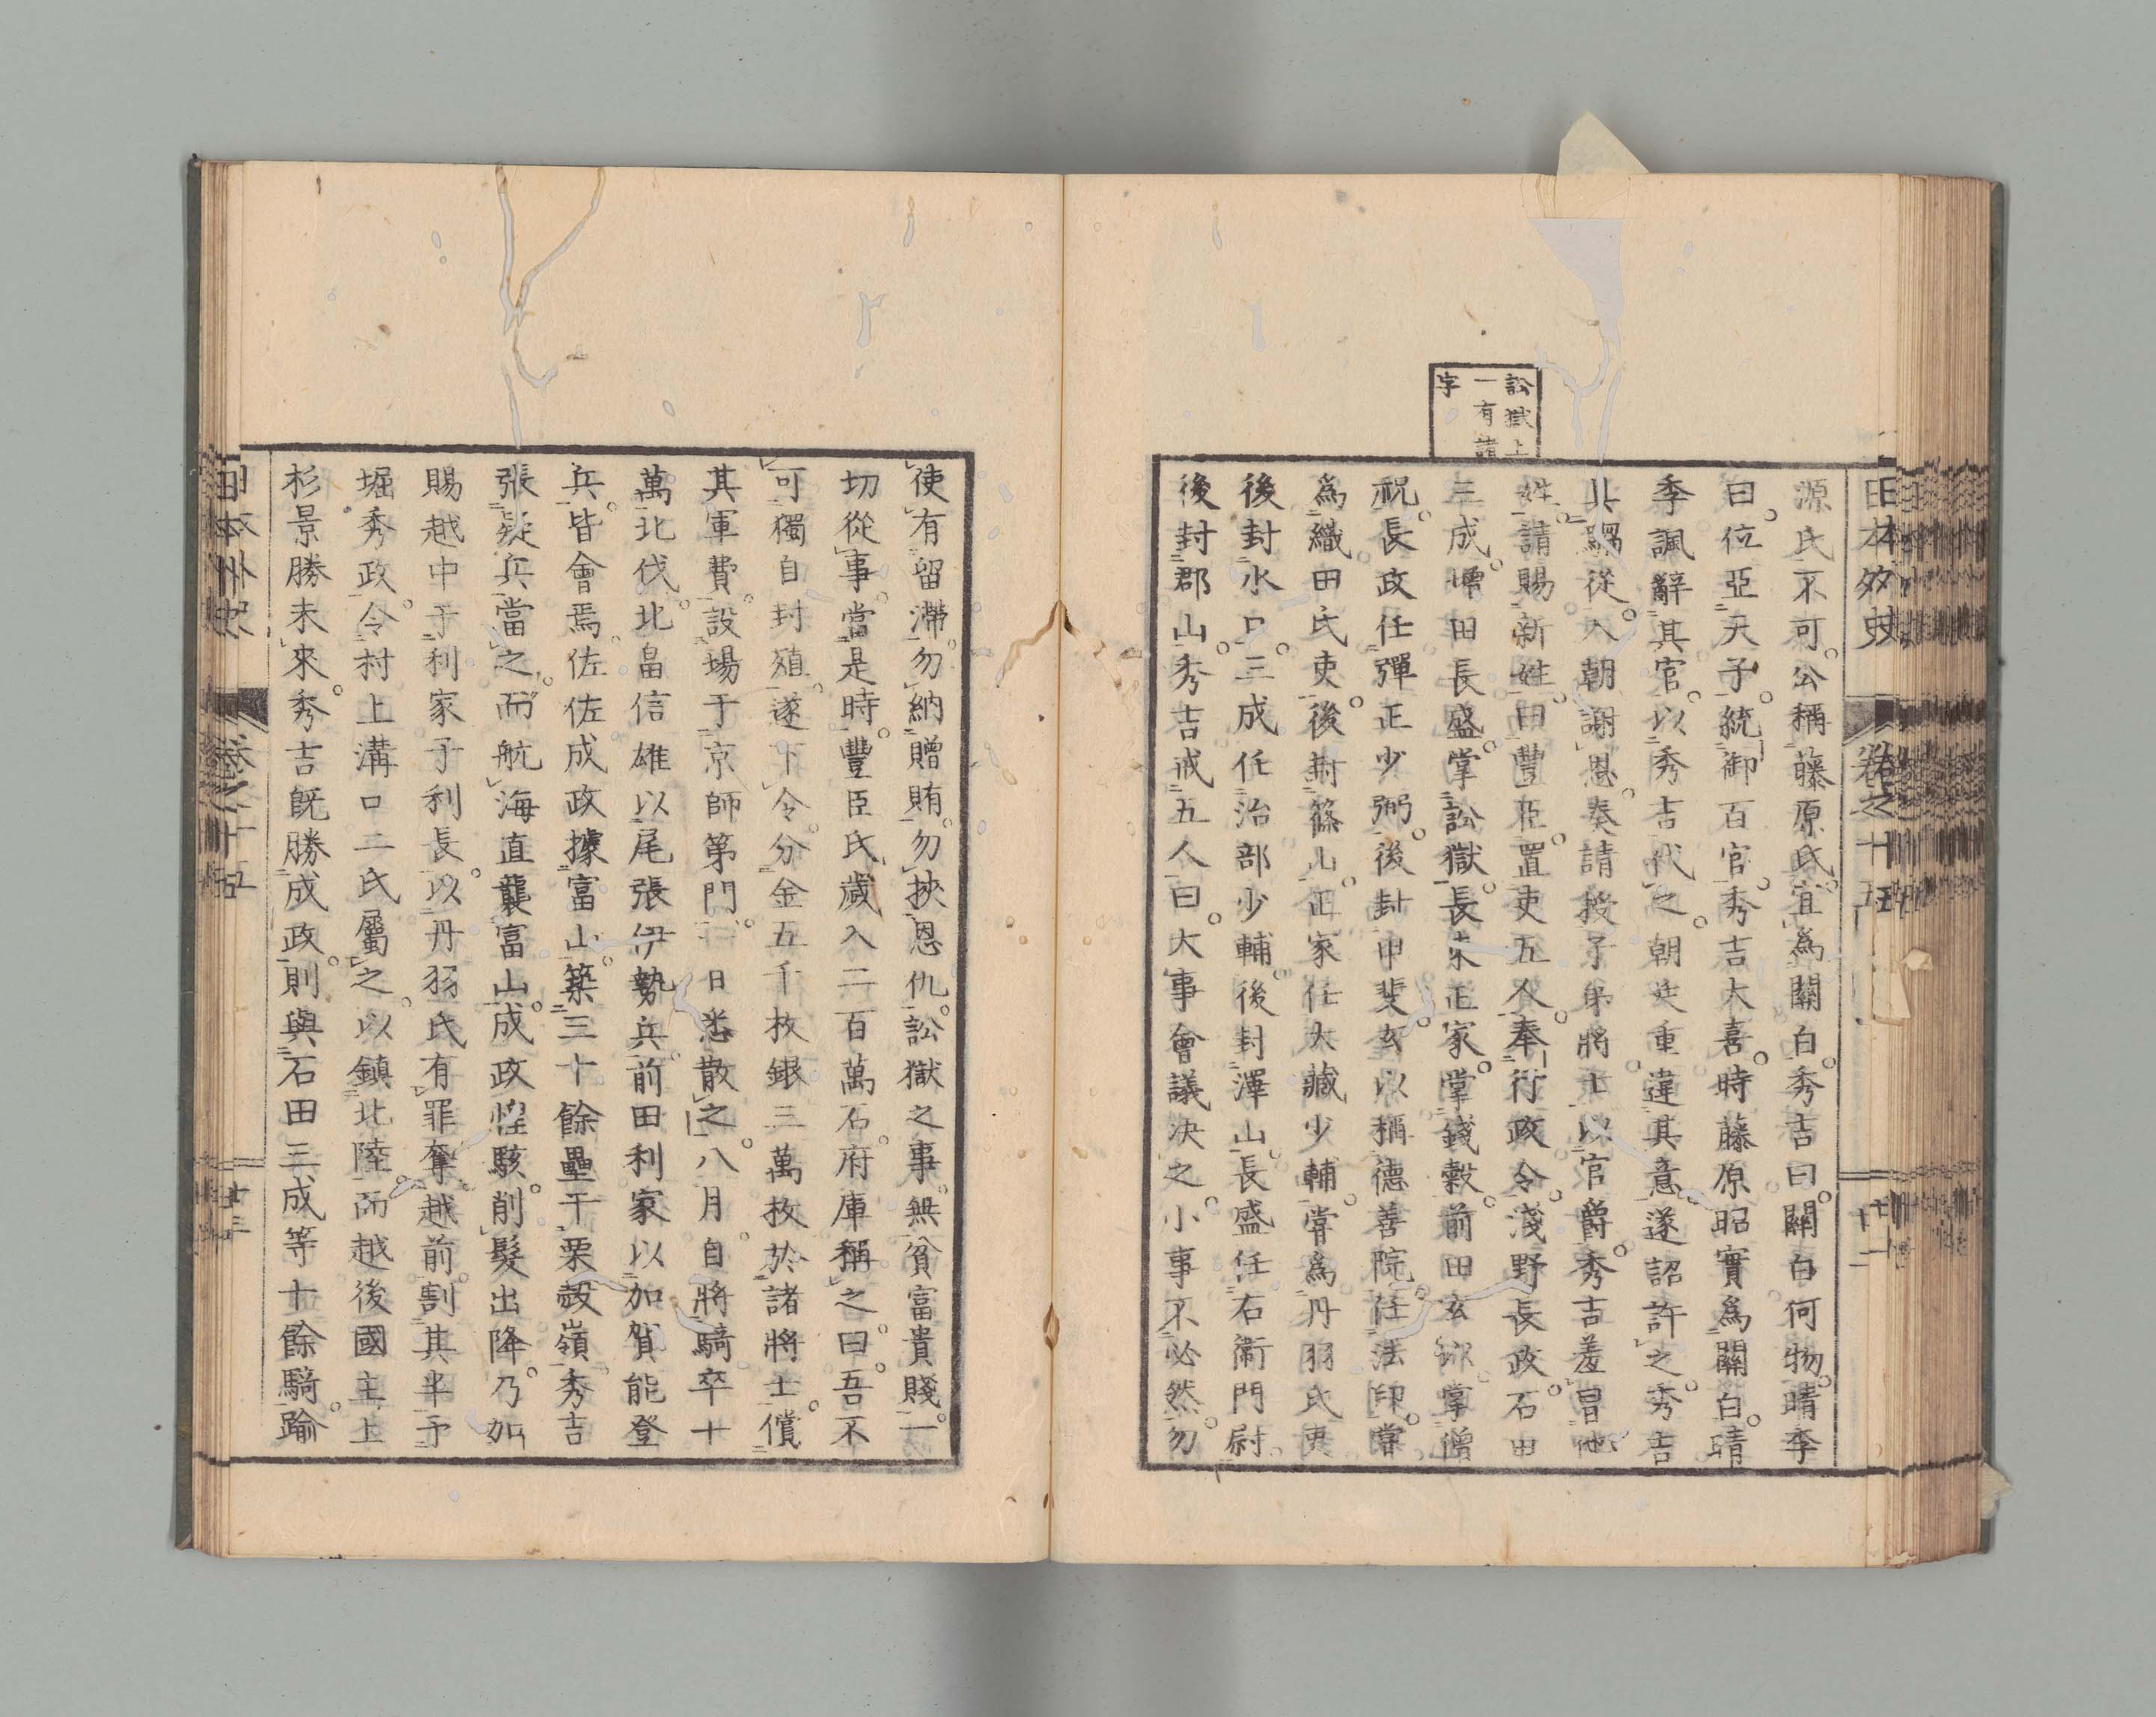 日本外史 卷之十五 十二
訟獄上
一有諸
字
源氏不可。公稱藤原氏。宜爲關白。秀吉曰。關白何物。晴季
曰。位亞天子。統御百官。秀吉大喜。時藤原昭實爲關白。晴
季諷辭其官。以秀吉代之。朝廷重違其意。遂詔許之。秀吉
騶從。入朝謝恩。奏請授子弟將士以官爵。秀吉羞冒他
姓。請賜新姓。曰豐臣。置吏五人。奉行政令。淺野長政。石田
三成。增田長盛。掌訟獄。長束正家。掌錢穀。前田玄以。掌僧
祝。長政任彈正少弼。後封甲斐。玄以稱德善院。任法印。嘗
爲織田氏吏。後封篠山。正家任大藏少輔。嘗爲丹羽氏吏
後封水口。三成任治部少輔。後封澤山。長盛任右衞門尉。
後封郡山。秀吉戒五人曰。大事會議決之。小事不必然。勿
使有留滯。勿納贈賄。勿挾恩仇。訟獄之事。無貧富貴賤。一
切從事。當是時。豐臣氏歲入二百萬石。府庫稱之。曰。吾不
可獨自封殖。遂下令。分金五千枚銀三萬枚於諸將士。償
其軍費。設場于京師第門。一日悉散之。八月。自將騎卒十
萬北伐。北畠信雄以尾張伊勢兵。前田利家以加賀能登
兵。皆會焉。佐佐成政據富山。築三十餘壘于栗殼嶺。秀吉
張疑兵當之。而航海直襲富山。成政惶駭。削髮出降。乃加
賜越中于利家子利長。以丹羽氏有罪奪越前。割其半予
堀秀政。令村上溝口二氏屬之。以鎮北陸。而越後國主上
杉景勝未來。秀吉既勝成政。則與石田三成等十餘騎。踰
日本外史 卷之十五 十三